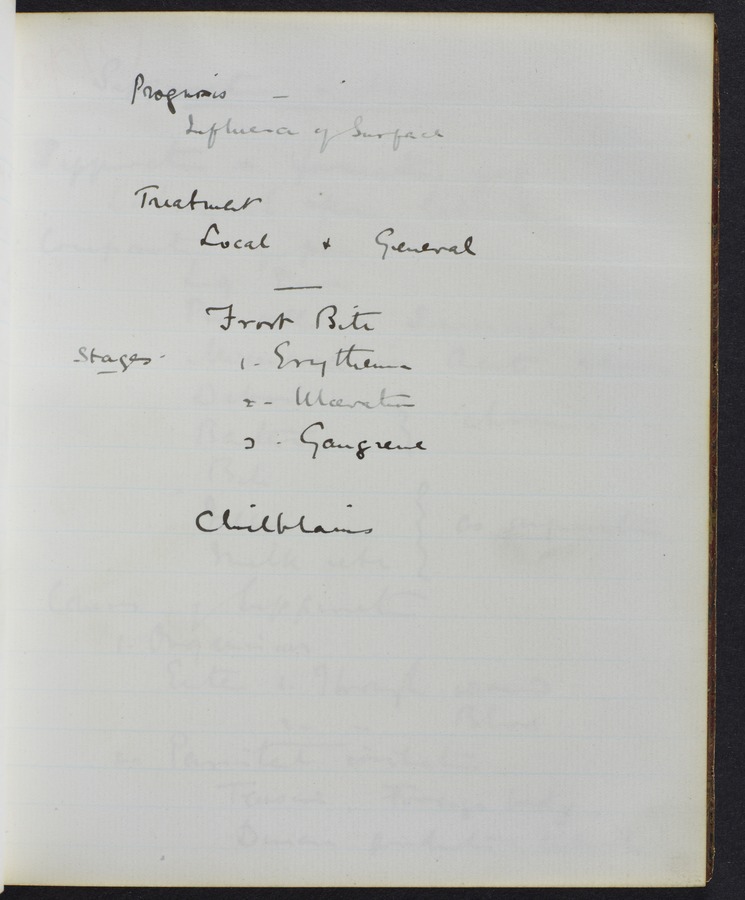 Prognosis —
Influence of Surface
Treatment
Local + General
—
Frost Bite
Stages. 1 - Erythema
2 - Ulceration
3 - Gangrene
Chilblains